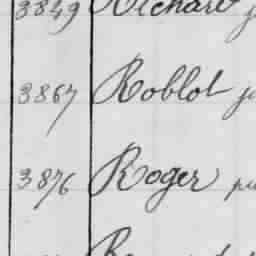 3849 Richard
3867 Roblot
3876 Roger